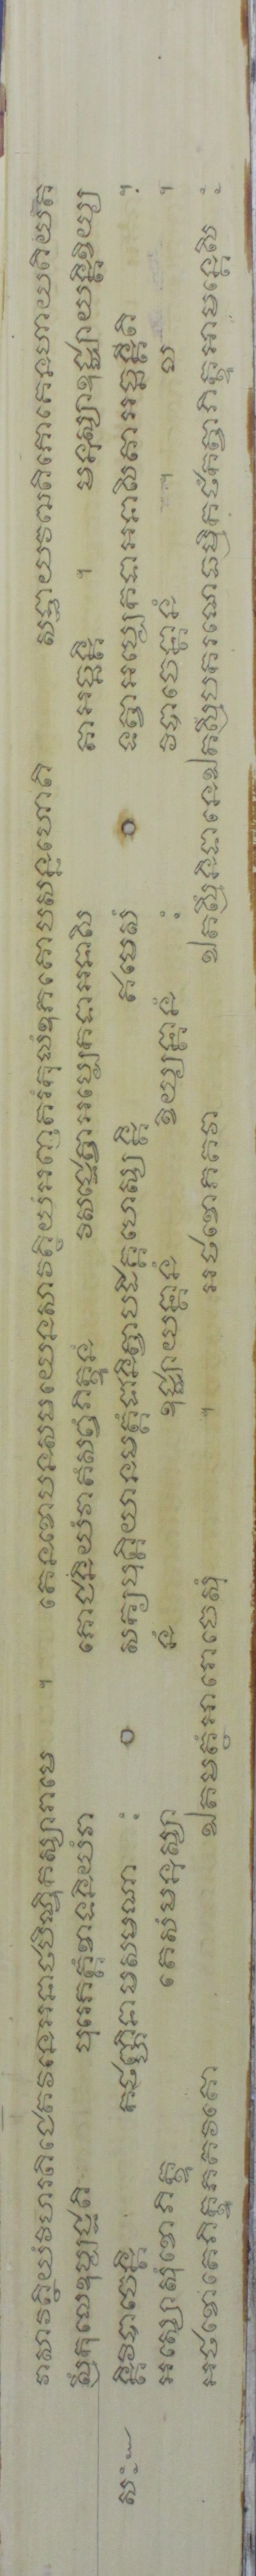 វាសាវត្ថិយំវិហរតិជេតវនេអនាថបិណ្ឌិកស្សារាមេ ។ តេនខោបនសមយេនសាវត្ថិយំអញ្ញតរំកុលំឧភតោបសន្នំហោតិ សទ្ធាយវឍតិភោគេនហាយតិយំត
ស្មឹកុលេឧប្បជ្ជតិ បុរេភត្តំខាទនិយំវា ភោជនិយំវាតំសព្វំភិក្ខុនំ វិសជ្ជេត្វាអប្បេកទាអនាសិ តាអច្ឆន្តិ ។ មនុស្សាឧជ្ឈាយន្តិខិយ្យ
ន្តិវិបាចេន្តិ កថញ្ហិនាមសមណា ៈ សក្យបុត្តិយានមត្តំជានិត្វាបដិគ្គហេស្សន្តិ ឥមេសំ ទត្វាអប្បេកទាអនាសិតាអច្ឆន្តីតិ ។
អស្សោសុំខោភិក្ខុ តេសំមនុស្សា នំ ឧជ្ឈាយន្តានំ ខិយ្យន្តានំ ៈ វិបាចេន្តានំ ។ ល ។
អថខោតេភិក្ខុភគវតោ ឯតមត្ថំអារោចេសុំ ។ អថខោភគវា ឯតស្មឹនិទានេឯតស្មឹបករណេធម្មិកថំកត្វាភិក្ខុអាមន្តេសិ ៈ